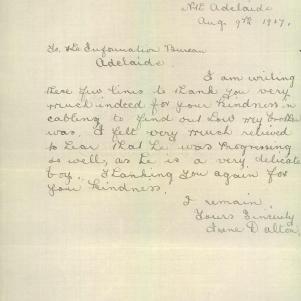 Nth Adelaide
Aug. 9th 1917.
To the Information Bureau
Adelaide.
I am writing
these few lines to thank you very
much indeed for your kindness in
cabling to find out how my brother
was. I felt very much relieved
to hear that he was progressing
so well, as he is a very delicate
boy. Thanking you again for
your kindness.
I remain
Yours Sincerely
Irene Dalton.